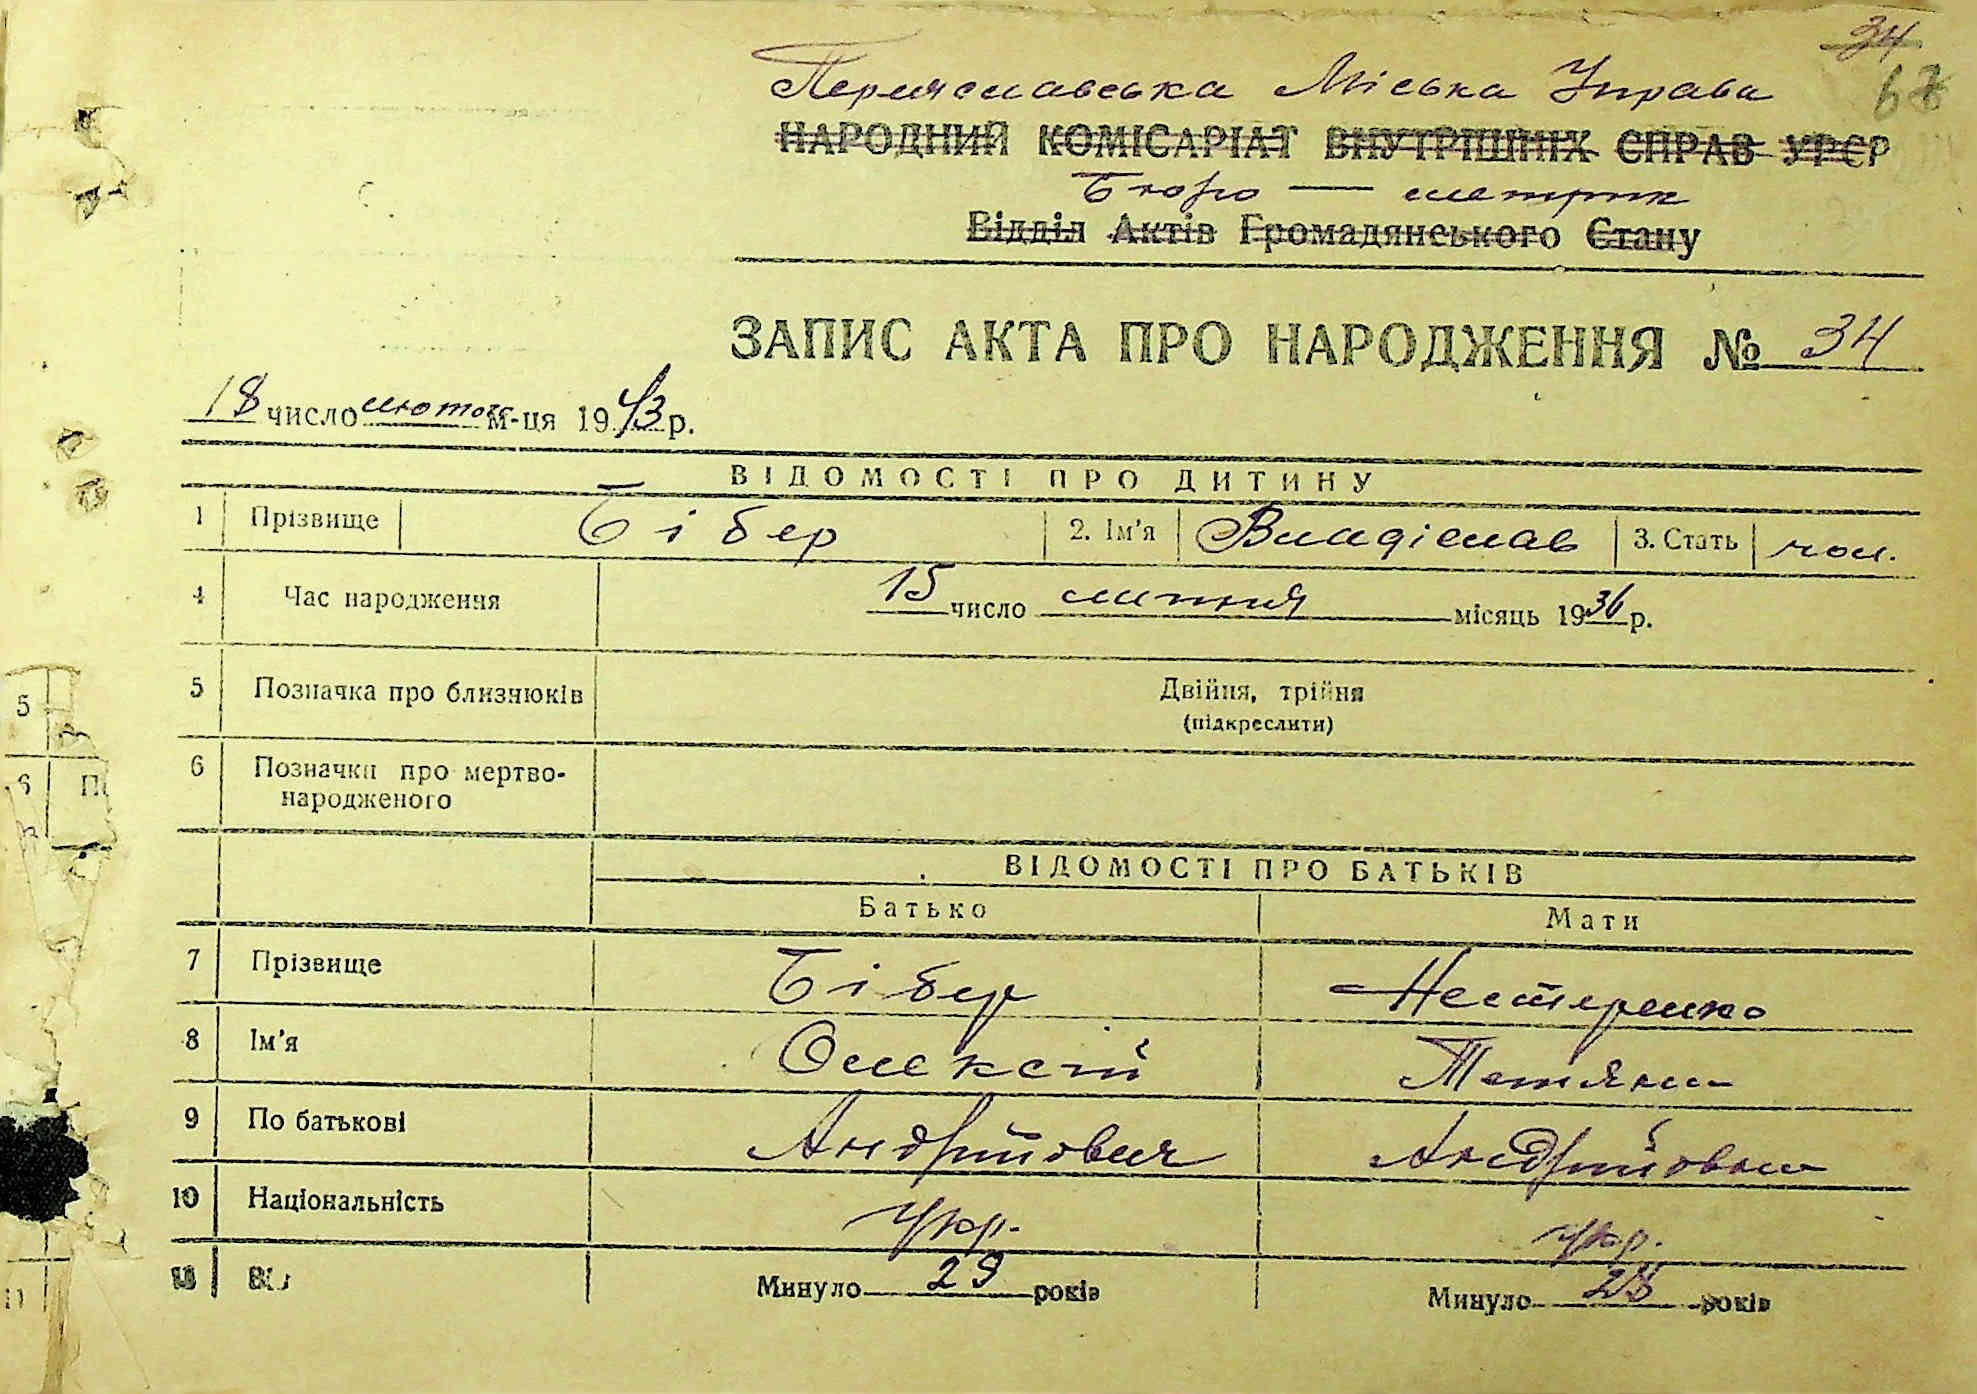 34
67
Переяславська Міська Управа
НАРОДНИЙ КОМІСАРІАТ ВНУТРІШНІХ СПРАВ УРСР
Бюро — метрик
Відділ Актів Громадянського Стану
ЗАПИС АКТА ПРО НАРОДЖЕННЯ № 34
18 число лютого м-ця 1943 р.
ВІДОМОСТІ ПРО ДИТИНУ
1 Прізвище Бібер 2. Ім'я Владіслав 3. Стать чол.
4 Час народження 15 число липня місяць 1936 р.
5 Позначка про близнюків Двійня, трійня
(підкреслити)
6 Позначка про мертво-
народженого
ВІДОМОСТІ ПРО БАТЬКІВ
Батько Мати
7 Прізвище Бібер Нестеренко
8 Ім'я Олексій Тетяна
9 По батькові Андрійович Андрійовна
10 Національність укр. укр.
11 Минуло 29 років Минуло 28 років
5
6 П
11